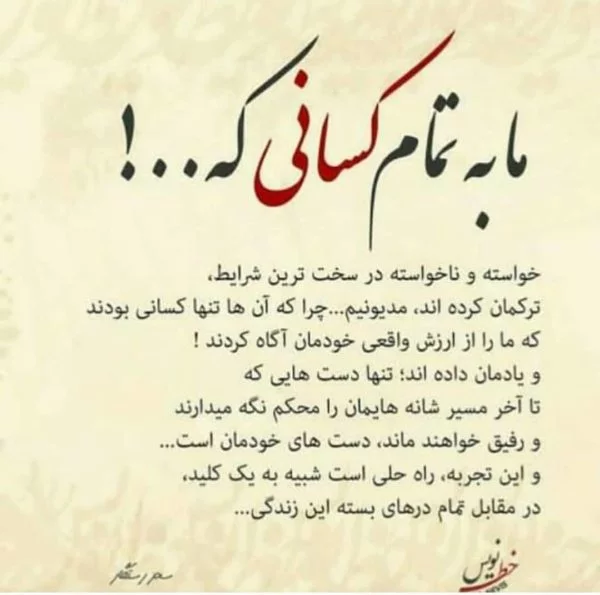 ما به تمام کسانی که...!
خواسته و ناخواسته در سخت ترین شرایط،
ترکمان کرده اند، مدیونیم...چرا که آن ها تنها کسانی بودند
که ما را از ارزش واقعی خودمان آگاه کردند !
و یادمان داده اند؛ تنها دست هایی که
تا آخر مسیر شانه هایمان را محکم نگه میدارند
و رفیق خواهند ماند، دست های خودمان است...
و این تجربه، راه حلی است شبیه به یک کلید،
در مقابل تمام درهای بسته این زندگی...
خط نویس